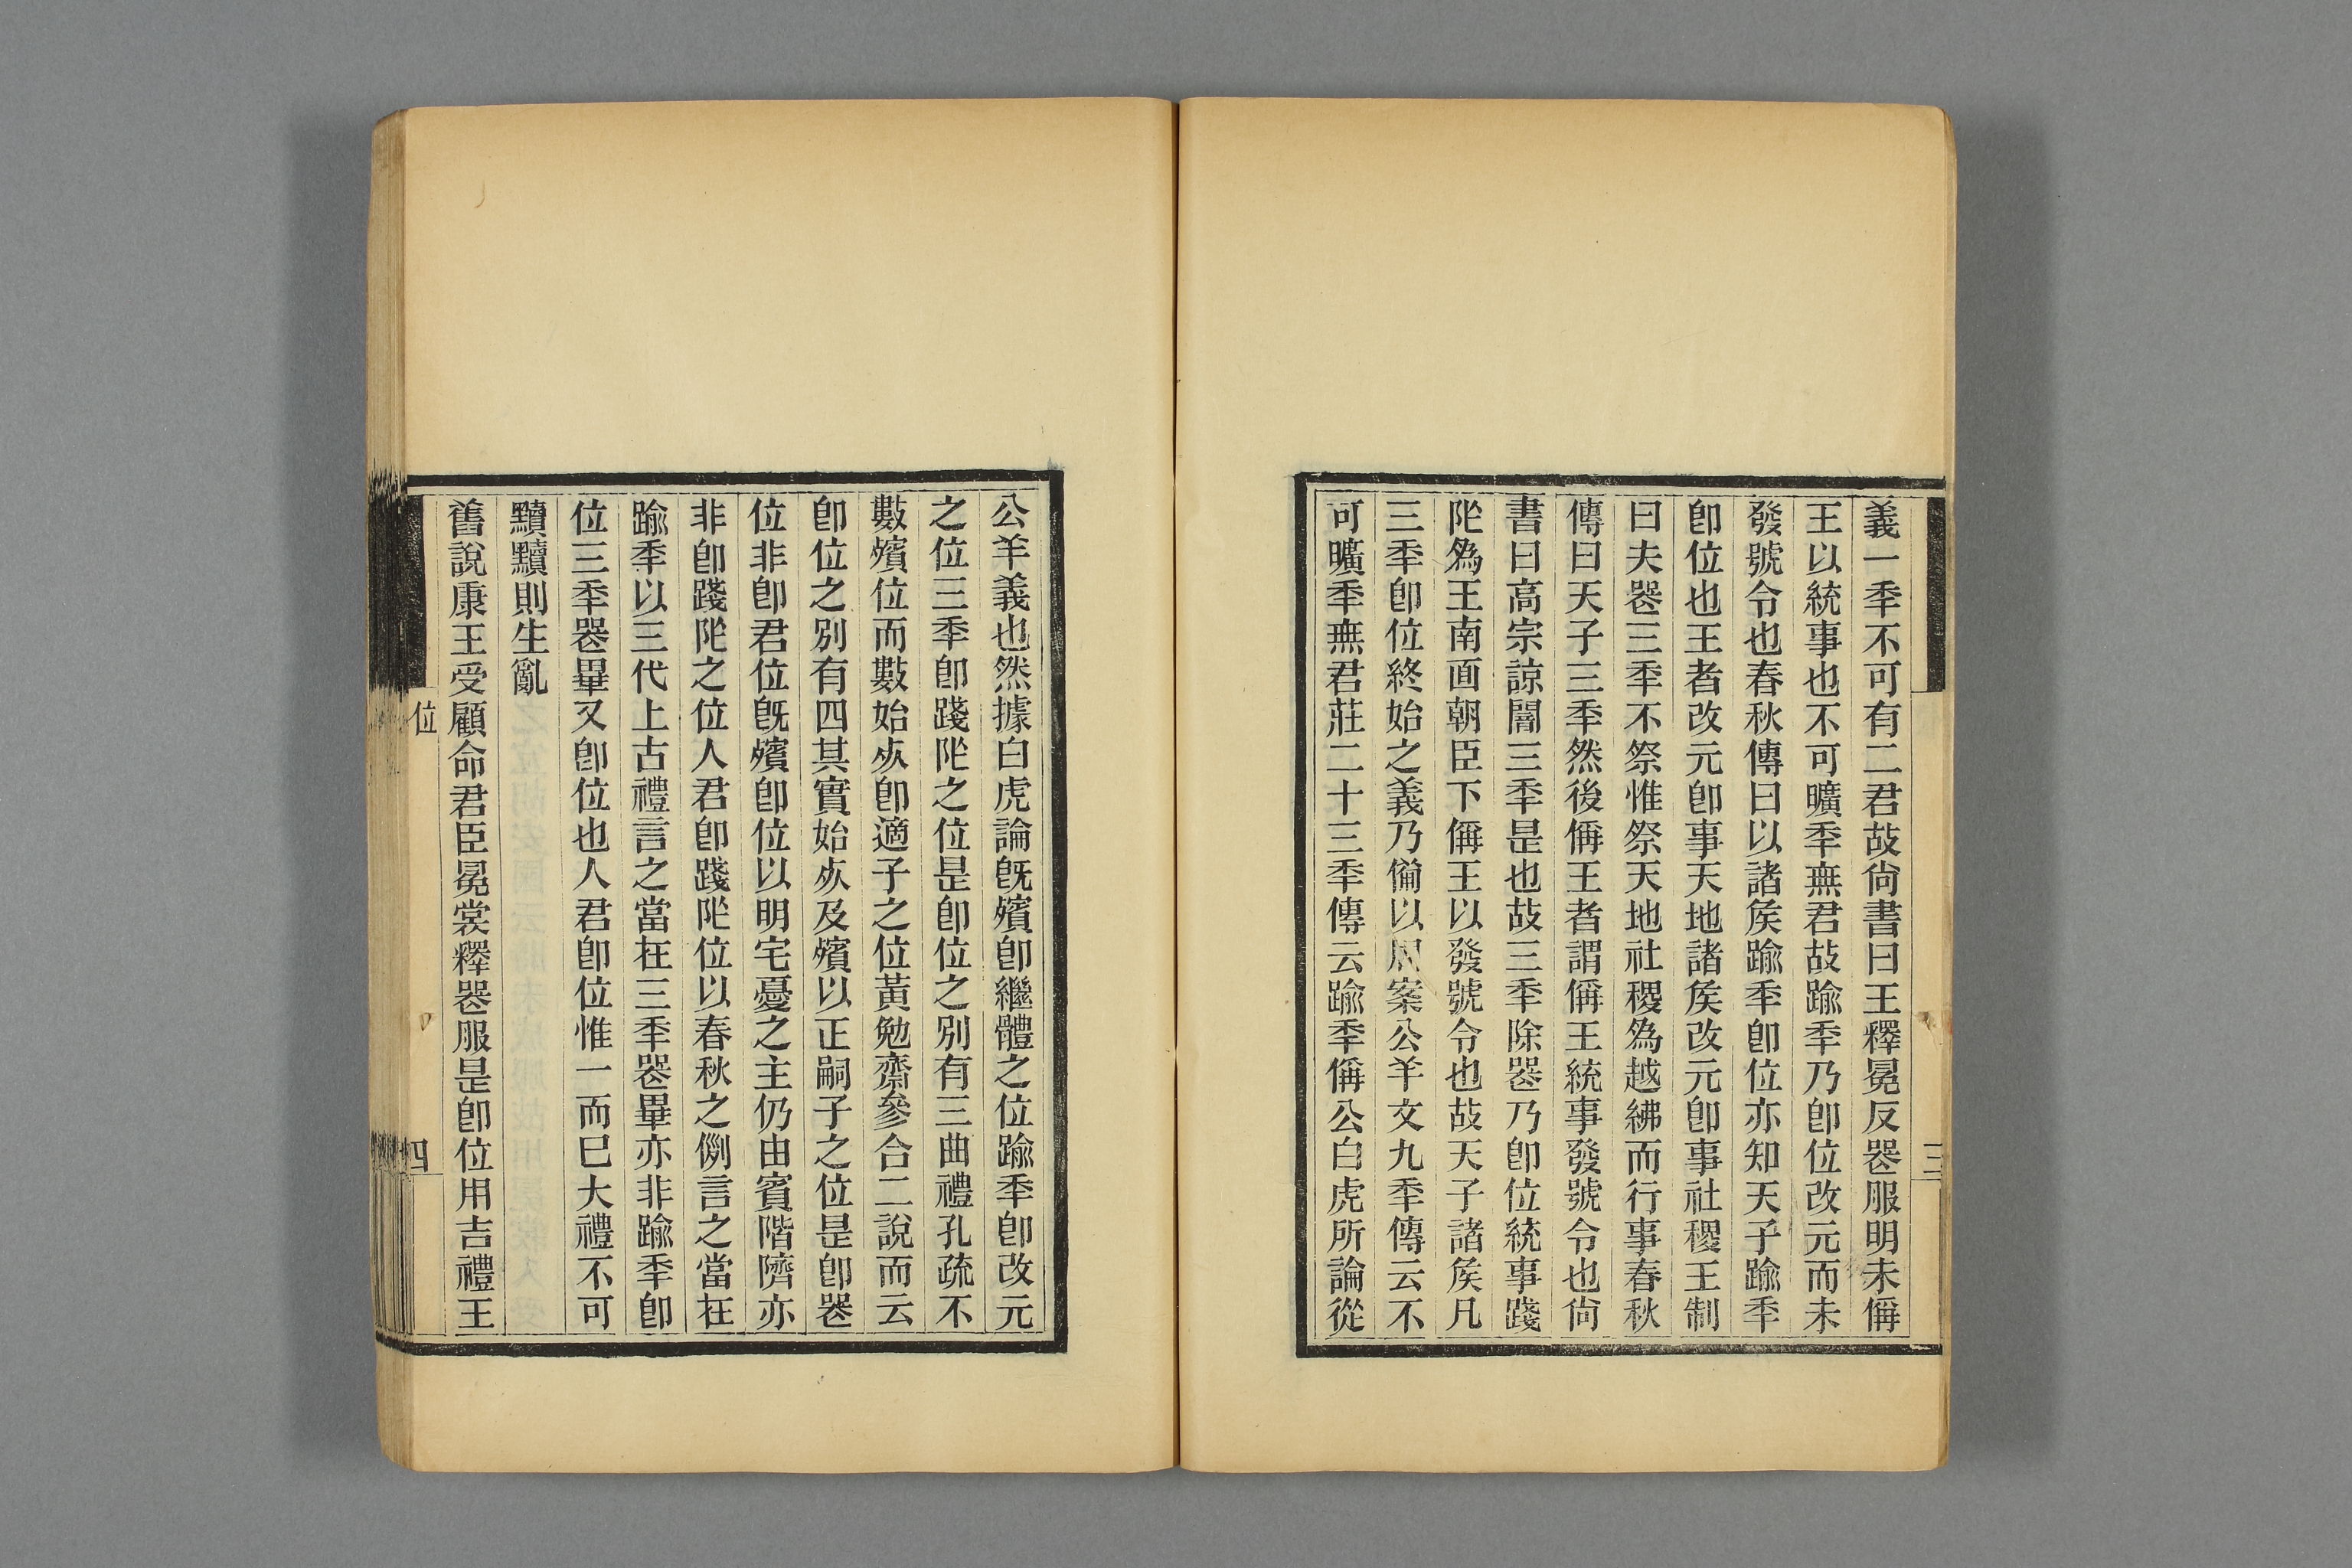 義一秊不可有二君故尙書曰王釋冕反器服明未偁
王以統事也不可曠秊無君故踰秊乃卽位改元而未
發號令也春秋傳曰以諸矦踰秊卽位亦知天子踰秊
卽位也王者改元卽事天地諸矦改元卽事社稷王制
曰夫器三秊不祭惟祭天地社稷爲越紼而行事春秋
傳曰天子三秊然後偁王者謂偁王統事發號令也尙
書曰高宗諒闇三秊是也故三秊除器乃卽位統事踐
阼爲王南面朝臣下偁王以發號令也故天子諸矦凡
三秊卽位終始之義乃僃以凥案公羊文九秊傳云不
可曠秊無君莊三十三秊傳云踰秊偁公白虎所論從
三
公羊義也然據白虎論旣殯卽繼體之位踰秊卽改元
之位三秊卽踐阼之位是卽位之別有三曲禮孔疏不
數殯位而數始㱙卽適子之位黃勉齋參合二說而云
卽位之別有四其實始㱙及殯以正嗣子之位是卽器
位非卽君位旣殯卽位以明宅憂之主仍由賓階隮亦
非卽踐阼之位人君卽踐阼位以春秋之例言之當在
踰秊以三代上古禮言之當在三秊器畢亦非踰秊卽
位三秊器畢又卽位也人君卽位惟一而巳大禮不可
黷黷則生亂
舊說康王受顧命君臣冕裳釋器服是卽位用吉禮王
位
四